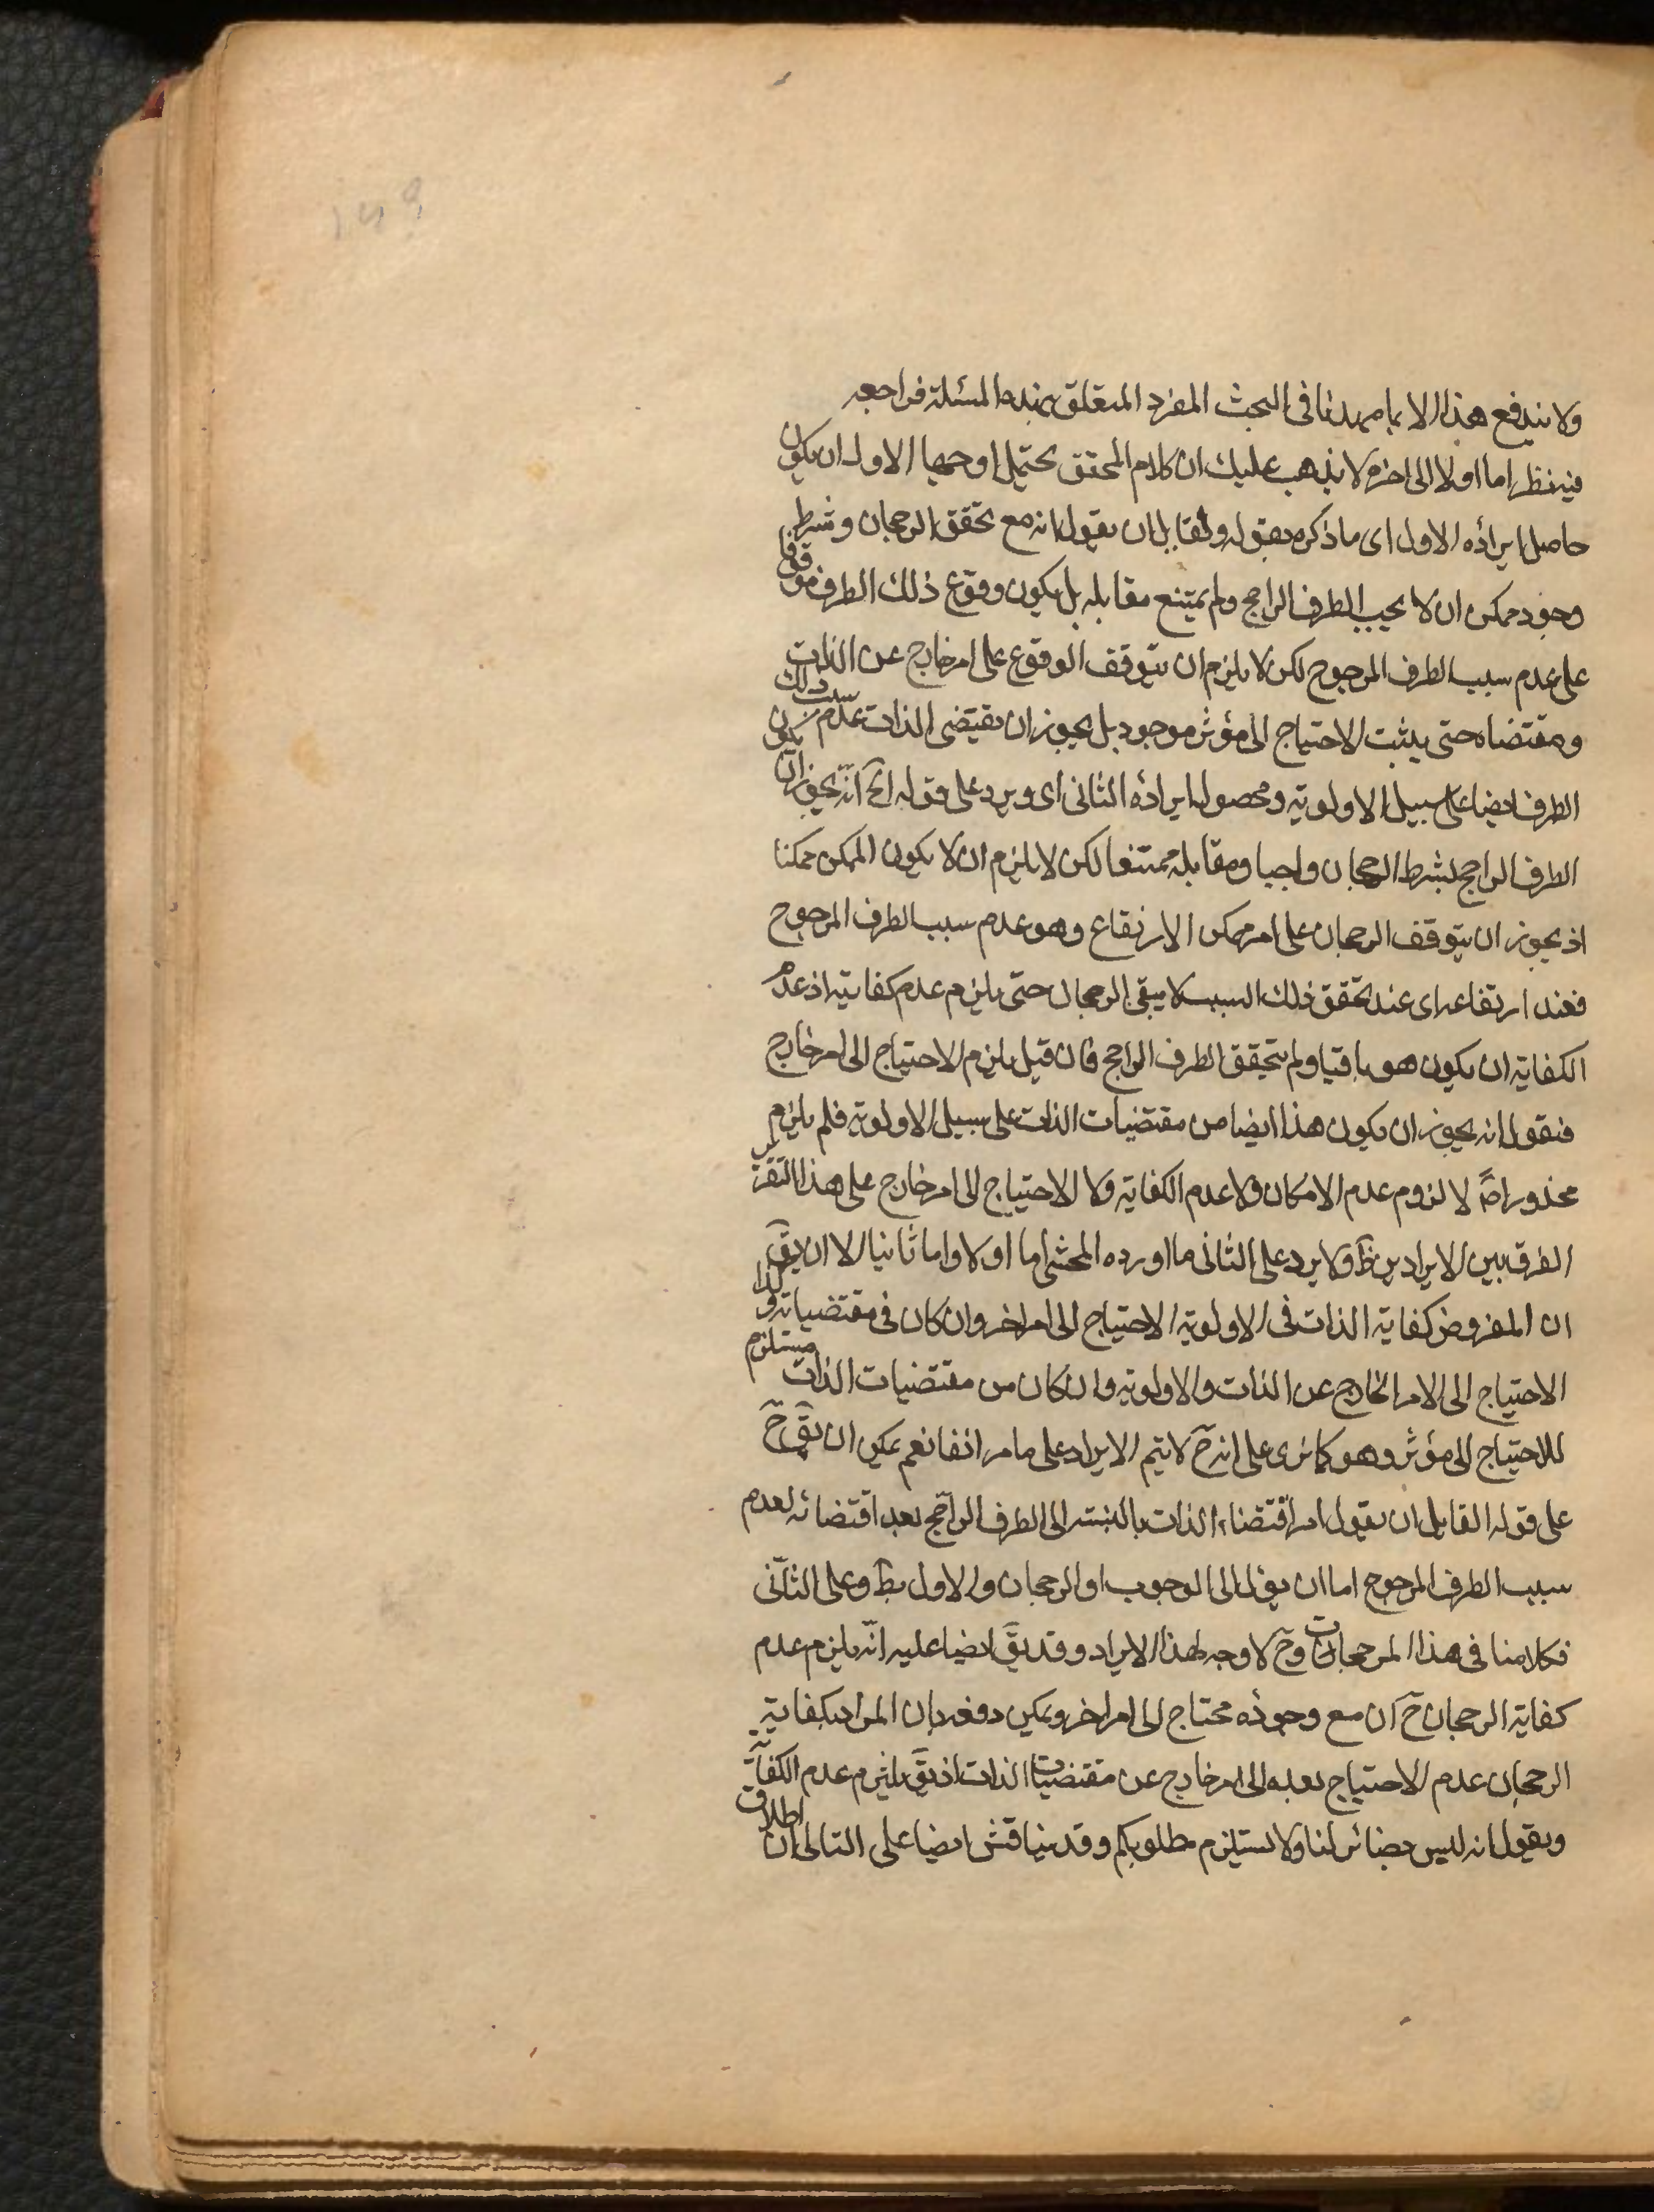 ولا يندفع هذا الا بما مهدنا في البحث المفرد المتعلق بهذه المسئلة فراجعه
فيه نظر اما اولا الى اخره لا يذهب عليك ان كلام المحقق يحتمل وجها الاول ان يكون
حاصل ايراده الاول اى ما ذكره بقوله ولقايل ان يقول انه مع تحقق الرجحان وشرط
وجود ممكن ان لا يجب الطرف الراجح ولم يمتنع مقابله بل يكون وقوع ذلك الطرف موقوفا
على عدم سبب الطرف المرجوح لكن لا يلزم ان يتوقف الوقوع على امر خارج عن الذات
ومقتضاه حتى يثبت الاحتياج الى مؤثر موجود بل يجوز ان يقتضى الذات عدم سبب ذلك
الطرف ايضا على سبيل الاولوية ومحصول ايراده الثانى اى ويرد على قوله آه انه يجوز ان يكون
الطرف الراجح بشرط الرجحان واجبا ومقابله ممتنعا لكن لا يلزم ان لا يكون الممكن ممكنا
اذ يجوز ان يتوقف الرجحان على امر ممكن الارتفاع وهو عدم سبب الطرف المرجوح
فعند ارتفاعه اى عند تحقق ذلك السبب لا يبقى الرجحان حتى يلزم عدم كفايته اذ عدم
الكفاية ان يكون هو باقيا ولم يتحقق الطرف الراجح فان قيل يلزم الاحتياج الى امر خارج
فنقول انه يجوز ان يكون هذا ايضا من مقتضيات الذات على سبيل الاولوية فلم يلزم
محذور اصً لا لزوم عدم الامكان ولا عدم الكفاية ولا الاحتياج الى امر خارج على هذا التقرير
الفرق بين الايرادين ظَ ولا يرد على الثانى ما اورده المحشى اما اولا واما ثانيا الا ان يقَ
ان المفروض كفاية الذات فى الاولوية الاحتياج الى امر اخر وان كان فى مقتضياته وكذا
الاحتياج الى الامر الخارج عن الذات والاولوية وان كان من مقتضيات الذات مستلزم
للاحتياج الى مؤثر وهو كما ترى على انه حَ لا يتم الايراد على ما مر انفا نعم يمكن ان يقَ حَ
على قوله القايل ان يقول امر اقتضاء الذات بالنسبة الى الطرف الراجح بعد اقتضائه لعدم
سبب الطرف المرجوح اما ان يؤل الى الوجوب او الرجحان والاول بطَ وعلى الثانى
فكلامنا فى هذا الرجحان وحَ لا وجه لهذا الايراد وقد يقَ ايضا عليه انه يلزم عدم
كفاية الرجحان حَ ان مع وجوده محتاج الى امر اخر ويمكن دفعه بان المراد بكفاية
الرجحان عدم الاحتياج بعده الى امر خارج عن مقتضيات الذات اذ يقَ يلتزم عدم الكفاية
ويقول انه ليس بضائر لنا ولا يستلزم مطلوبكم وقد يناقش ايضا على التالى ان اطلاق